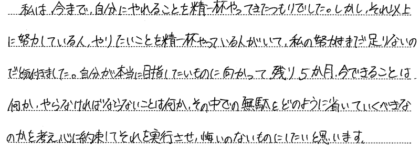 私は、今まで、自分にやれることを精一杯やってきたつもりでした。しかし、それ以上
に努力している人、やりたいことを精一杯やっている人がいて、私の努力はまだ足りないの
だと気付きました。自分が本当に目指したいものに向かって残り5か月、今できることは
何か、やらなければならないことは何か、その中での無駄をどのように省いていくべきな
のかを考え、心に約束してそれを実行させ、悔いのないものにしたいと思います。